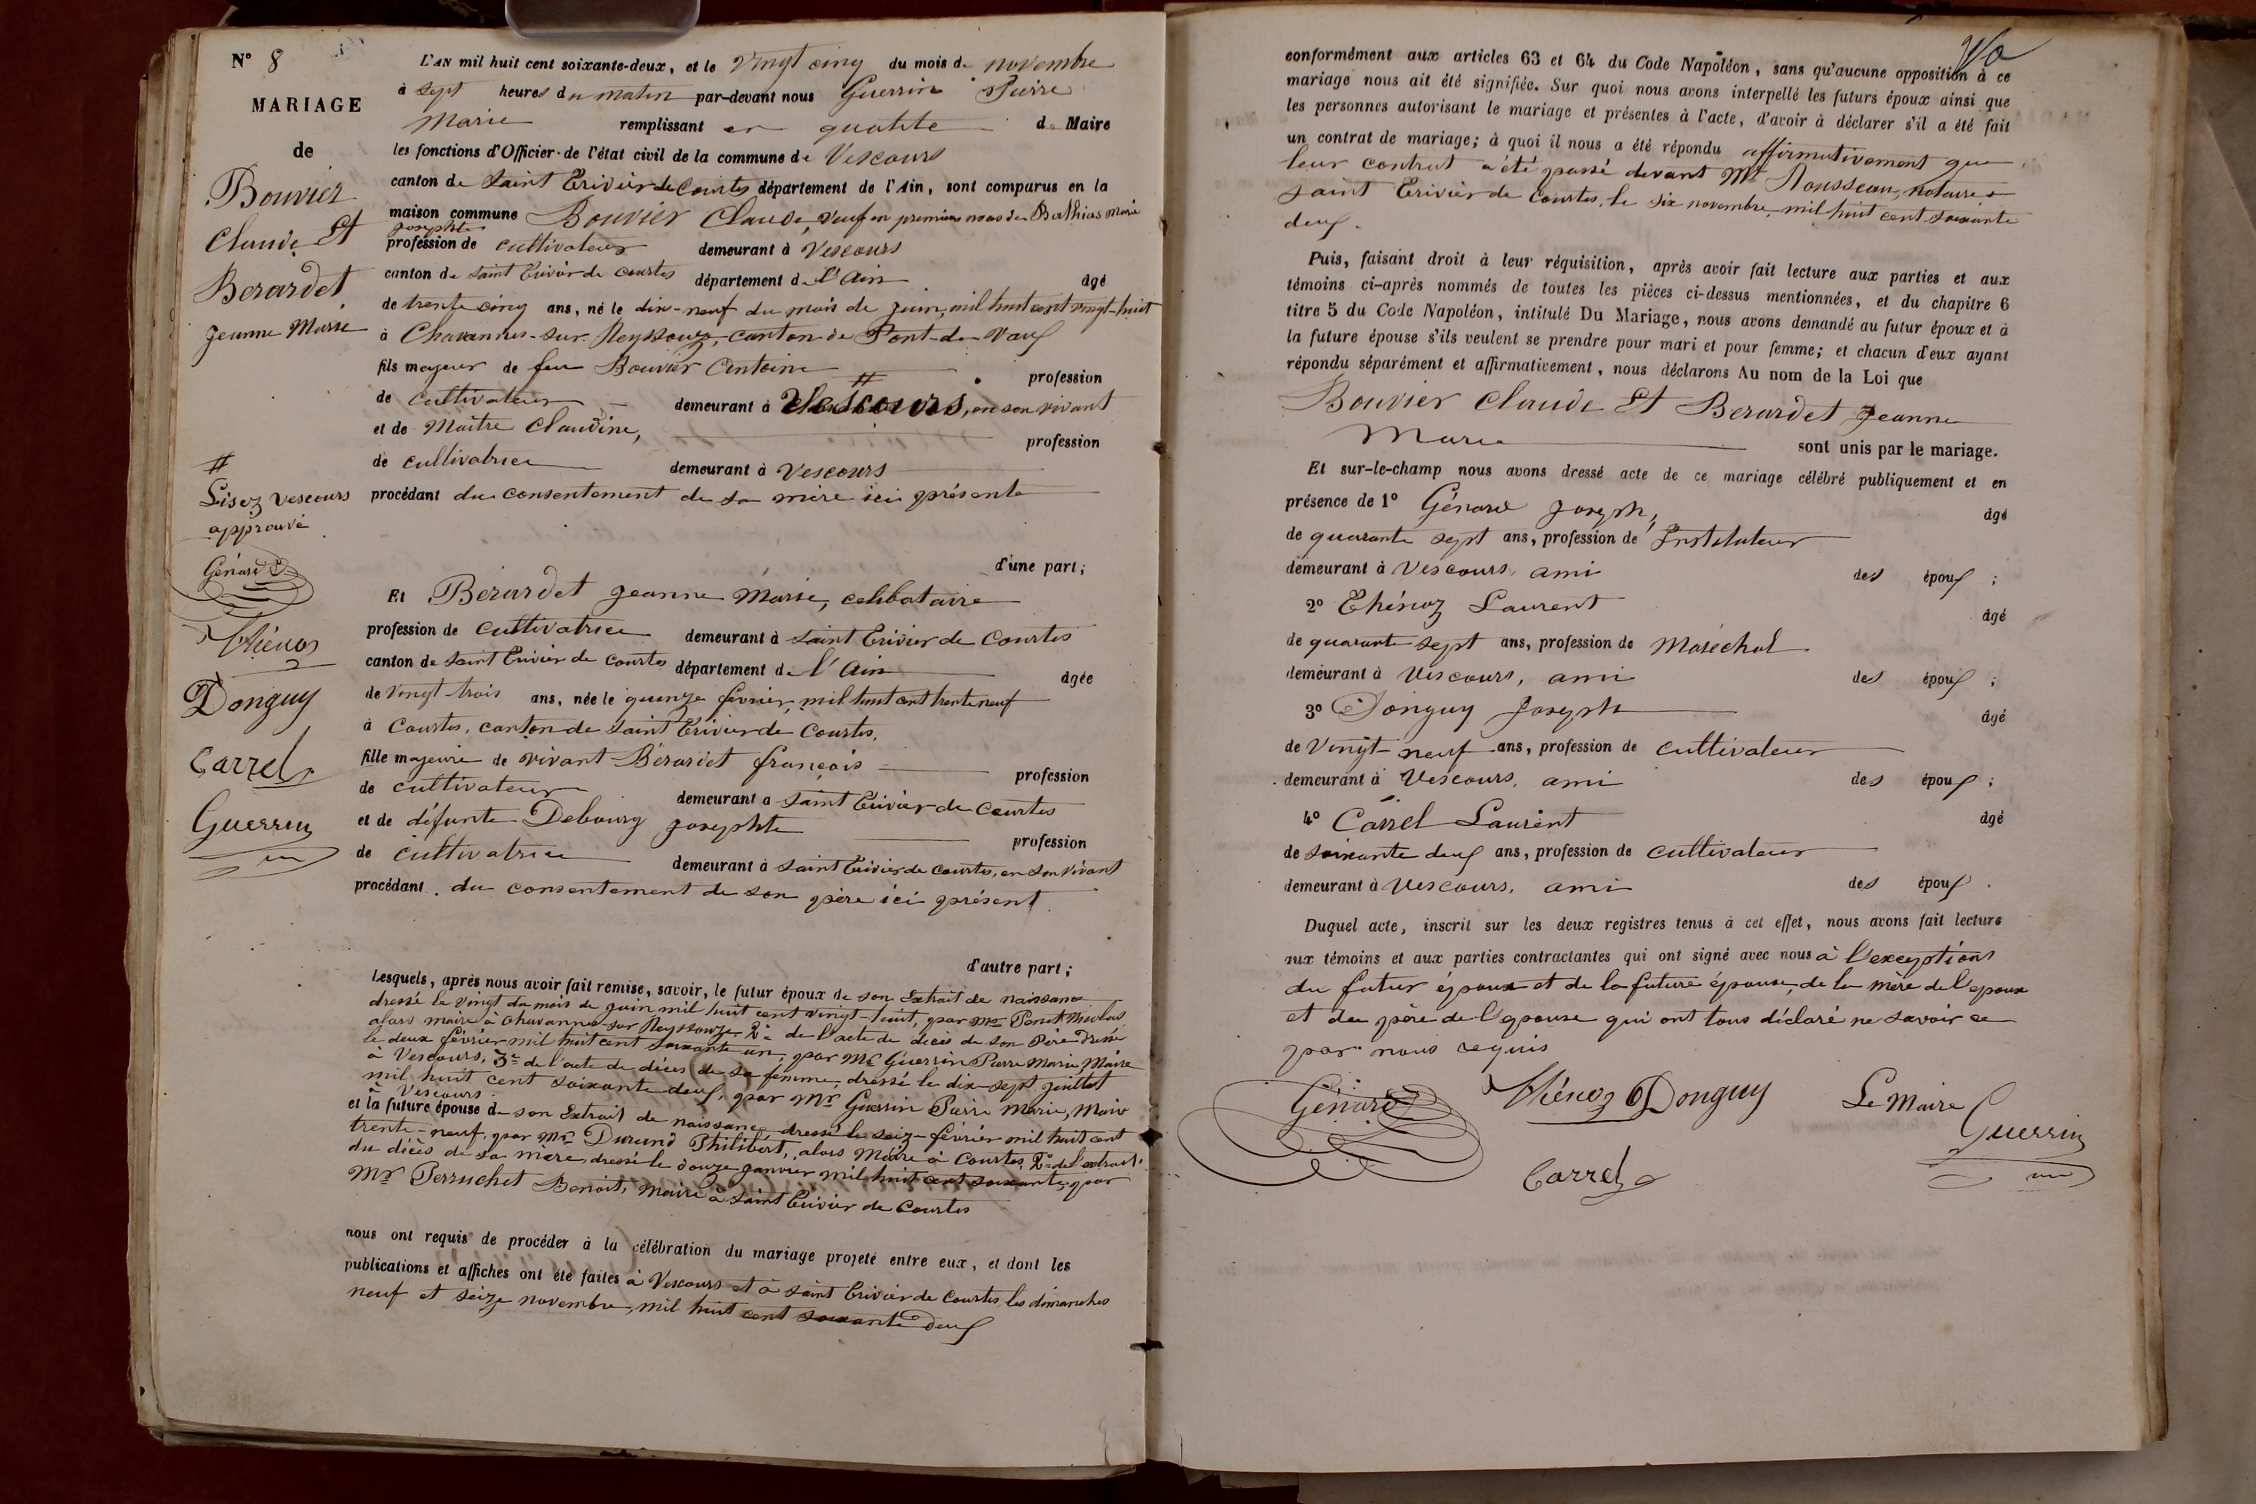 N° 8
MARIAGE
de
Bouvier
Claude Et
Berardet
Jeanne Marie
#
Lisez Vescours
approuvé
Génard
Thénoz
Donguy
Carrel
Guerrin
L'AN mil huit cent soixante-deux, et le Vingt cinq du mois de novembre
à sept heures du matin par-devant nous Guerrin Pierre
Marie remplissant en qualité de Maire
les fonctions d'Officier de l'état civil de la commune de Vescours
canton de Saint Trivier de Courtes département de l'Ain, sont comparus en la
maison commune Bouvier Claude, veuf en premières noces de Bathias Marie
Josephte
profession de cultivateur demeurant à Vescours
canton de Saint Trivier de Courtes département de L'Ain âgé
de trente cinq ans, né le dix-neuf du mois de Juin, mil huit cent vingt-huit
à Chavannes-sur-Reyssouze, canton de Pont-de-Vaux
fils majeur de feu Bouvier Antoine profession
de cultivateur demeurant à # Vescours, en son vivant
et de Maitre Claudine, profession
de cultivatrice demeurant à Vescours
procédant du consentement de sa mère ici présente
d'une part;
Et Bérardet Jeanne Marie, celibataire
profession de cultivatrice demeurant à Saint Trivier de Courtes
canton de Saint Trivier de Courtes département de l'Ain âgée
de Vingt-trois ans, née le quinze février, mil huit cent trente neuf
à Courtes, canton de Saint Trivier de Courtes,
fille majeure de vivant Bérardet françois profession
de cultivateur demeurant a Saint Trivier de Courtes
et de défunte Debourg Josephte profession
de cultivatrice demeurant à Saint Trivier de Courtes, en son vivant
procédant du consentement de son père ici présent
d'autre part;
Lesquels, après nous avoir fait remise, savoir, le futur époux de son Extrait de naissance
dressé le Vingt du mois de juin mil huit cent vingt-huit, par Mr Nicolas
alors maire à Chavannes-sur-Reyssouze 2° de l'acte de décès de son Père dressé
le deux février mil huit cent soixante un, par Mr Guerrin Pierre Marie Maire
à Vescours, 3° de l'acte de décès de sa femme, dressé le dix-sept Juillet
mil huit cent soixante deux, par Mr Guerrin Pierre Marie, Maire
à Vescours.
et la future épouse de son Extrait de naissance dressé le seize février mil huit cent
trente-neuf, par Mr Durand Philibert, alors Maire à Courtes, 2° de l'extrait
du décès de sa mère, dressé le douze janvier mil huit cent soixante, par
Mr Perruchet Benoit, maire à Saint Trivier de Courtes
nous ont requis de procéder à la célébration du mariage projeté entre eux, et dont les
publications et affiches ont été faites à Vescours et à Saint Trivier de Courtes les dimanches
neuf et seize novembre, mil huit cent soixante deux
conformément aux articles 63 et 64 du Code Napoléon, sans qu'aucune opposition à ce
mariage nous ait été signifiée. Sur quoi nous avons interpellé les futurs époux ainsi que
les personnes autorisant le mariage et présentes à l'acte, d'avoir à déclarer s'il a été fait
un contrat de mariage; à quoi il nous a été répondu affirmativement que
leur contrat a été passé devant Mr Rousseau, notaire à
Saint Trivier de Courtes, le six novembre, mil huit cent soixante
deux.
Puis, faisant droit à leur réquisition, après avoir fait lecture aux parties et aux
témoins ci-après nommés de toutes les pièces ci-dessus mentionnées, et du chapitre 6
titre 5 du Code Napoléon, intitulé Du Mariage, nous avons demandé au futur époux et à
la future épouse s'ils veulent se prendre pour mari et pour femme; et chacun d'eux ayant
répondu séparément et affirmativement, nous déclarons Au nom de la Loi que
Bouvier Claude Et Berardet Jeanne
Marie sont unis par le mariage.
Et sur-le-champ nous avons dressé acte de ce mariage célébré publiquement et en
présence de 1° Génard Joseph, âgé
de quarante sept ans, profession de Instituteur
demeurant à Vescours, ami des époux ;
2° Thénoz Laurent âgé
de quarante sept ans, profession de Maréchal
demeurant à Vescours, ami des époux ;
3° Donguy Joseph âgé
de Vingt neuf ans, profession de cultivateur
demeurant à Vescours, ami des époux ;
4° Carrel Laurent âgé
de soixante deux ans, profession de cultivateur
demeurant à Vescours, ami des époux .
Duquel acte, inscrit sur les deux registres tenus à cet effet, nous avons fait lecture
aux témoins et aux parties contractantes qui ont signé avec nous à l'exception
du futur époux et de la future épouse, de la mère de l'epoux
et du père de l'epouse qui ont tous déclaré ne savoir ce
par nous requis
Génard Thénoz Donguy Le Maire
Guerrin
Carrel